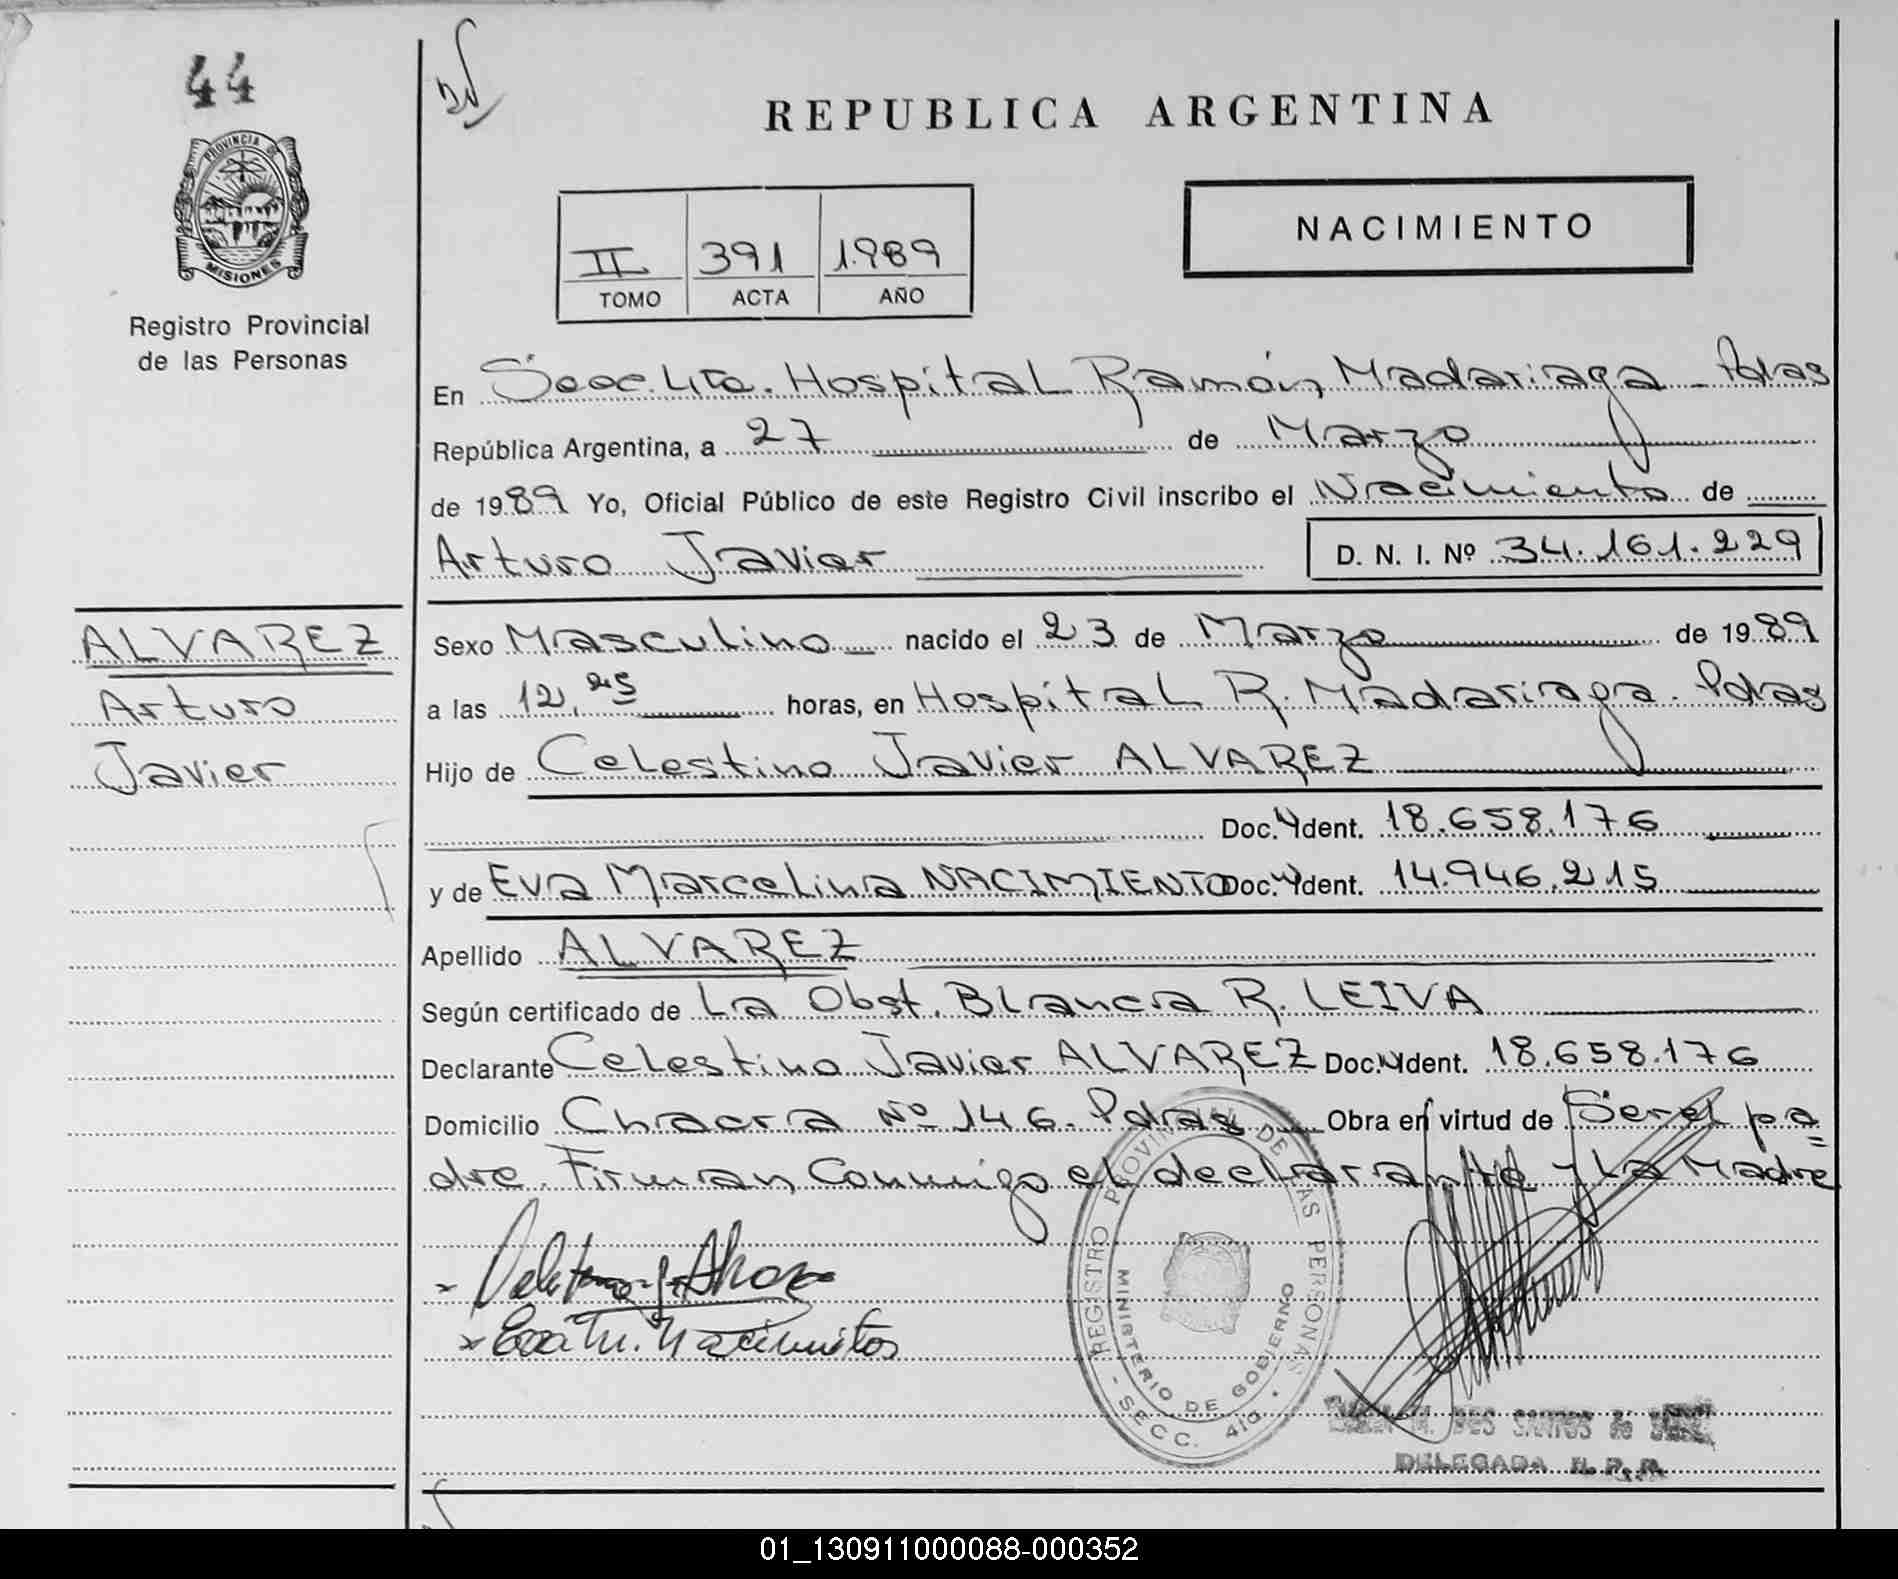 44
PROVINCIA DE
MISIONES
Registro Provincial
de las Personas
REPUBLICA ARGENTINA
II 391 1.989
TOMO ACTA AÑO
NACIMIENTO
En Secc. 4ta. Hospital Ramón Madariaga - Pdas
República Argentina, a 27 de Marzo
de 1989 Yo, Oficial Público de este Registro Civil inscribo el Nacimiento de
Arturo Javier D. N. I. Nº 34.161.229
ALVAREZ
Arturo
Javier
Sexo Masculino nacido el 23 de Marzo de 1989
a las 12,25 horas, en Hospital R. Madariaga. Pdas
Hijo de Celestino Javier ALVAREZ
Doc. Ident. 18.658.176
y de Eva Marcelina NACIMIENTO Doc. Ident. 14.946.215
Apellido ALVAREZ
Según certificado de La Obst. Blanca R. LEIVA
Declarante Celestino Javier ALVAREZ Doc. Ident. 18.658.176
Domicilio Chacra Nº 146. Pdas Obra en virtud de Ser el pa=
dre. Firman Conmigo el declarante y La Madre
REGISTRO PROVINCIAL DE LAS PERSONAS
MINISTERIO DE GOBIERNO
- SECC. 4ta. -
DOS SANTOS de
DELEGADA R. P. P.
01_130911000088-000352